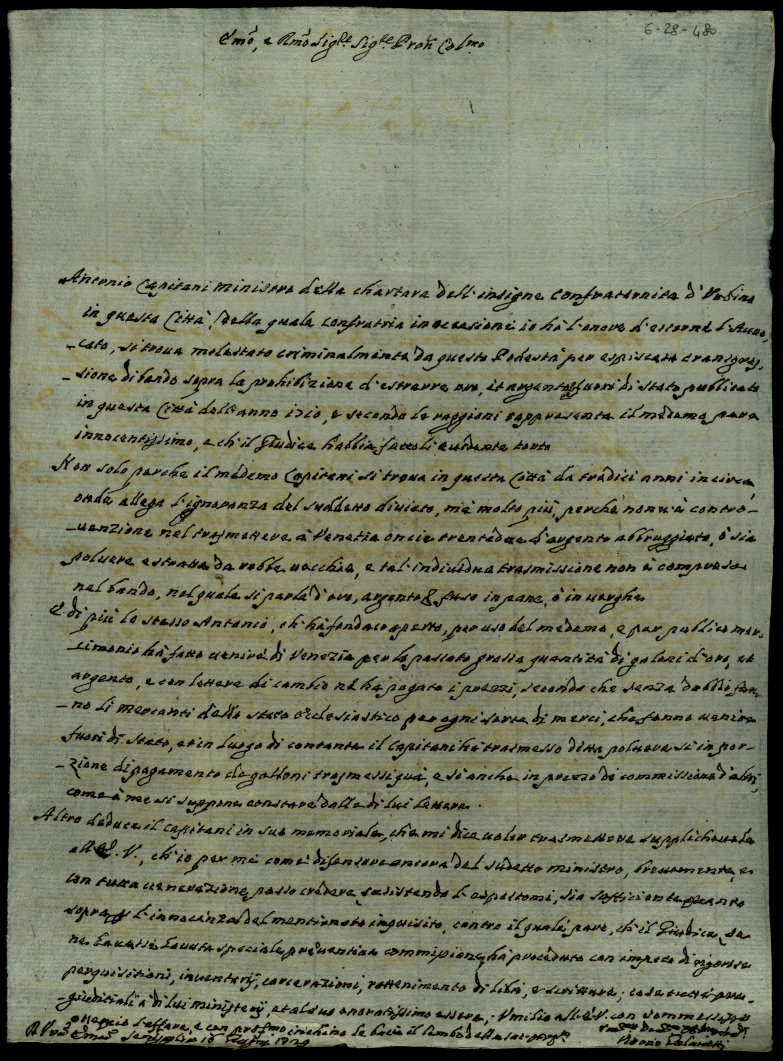 6-28-480
Emo, e Rmo Sigre. Sigre Pron Colmo
Antonio Capitani ministro della chartara dell'insigne confraternita d'Urbino
in questa Città (della quale confratria in occasione io hò l'onore d'esserne l'Auuo,
-cato, si troua molestato criminalmente da questo Podestà per espiscata transgres,
-sione di bando sopra la prohibizione d'estrarre oro, et argento fuori di Stato publicato
in questa Città dell'anno 1710, e secondo le raggioni rappresenta il medemo pare
innocentissimo, e ch'il Giudice habbia fattoli euidente torto
Non solo perche il medemo Capitani si troua in questa Città da tredici anni in circa,
onde allega l'ignoranza del suddetto diuieto, mà molto più, perche non u'è contro-
-uenzione nel trasmettere à Venetia oncie trentadue d'argento abbruggiato, ò sia
poluere estratta da robbe uecchie, e tal'indiuidua trasmissione non è compresa
nel bando, nel quale si parla d'oro, argento fuso in pane, ò in uerghe
E di più lo stesso Antonio, ch'hà fondaco aperto, per uso del medemo, e per publico mer-
-cimonio hà fatto uenire di Venezia per lo passato grossa quantità di galoni d'oro, et
argento, e con lettere di cambio nè ha pagato i prezzi, secondo che senza dubbio fan-
-no li mercanti dello Stato Ecclesiastico per ogni sorte di merci, che fanno uenire
fuori di Stato, et in luogo di contante il Capitani hà trasmesso detta poluere sì in por-
-zione di pagamento de galloni trasmessi quà, e sì anche in prezzo di commissione d'altri,
come à me si suppone constare dalle di lui lettere.
Altro deduce il Capitani in suo memoriale, che mi dice uoler trasmettere supplicheuole
all'E. V., ch'io per me come difensore ancora del sudetto ministro, breuemente, e
con tutta uenerazione posso credere, sussistendo l'espostomi, sia sufficiente quanto
sopra l'innocenza del mentionato inquisito, contro il quale pare, ch'il Giudice, se
ne speciale preuentiua commissione, hà proceduto con impeto di rigorose
perquisitioni, inuentarij, carcerazioni, rattenimento di libri, e scritture; cose tutte pre-
-giuditiali à di lui ministerij, et al suo onoratissimo essere. Umilio all'E.V. con sommessione
ossequio l'affare, e con profmo inchino le bacio il lembo della sac: porpa
D. V. Emza Senigallia 1720